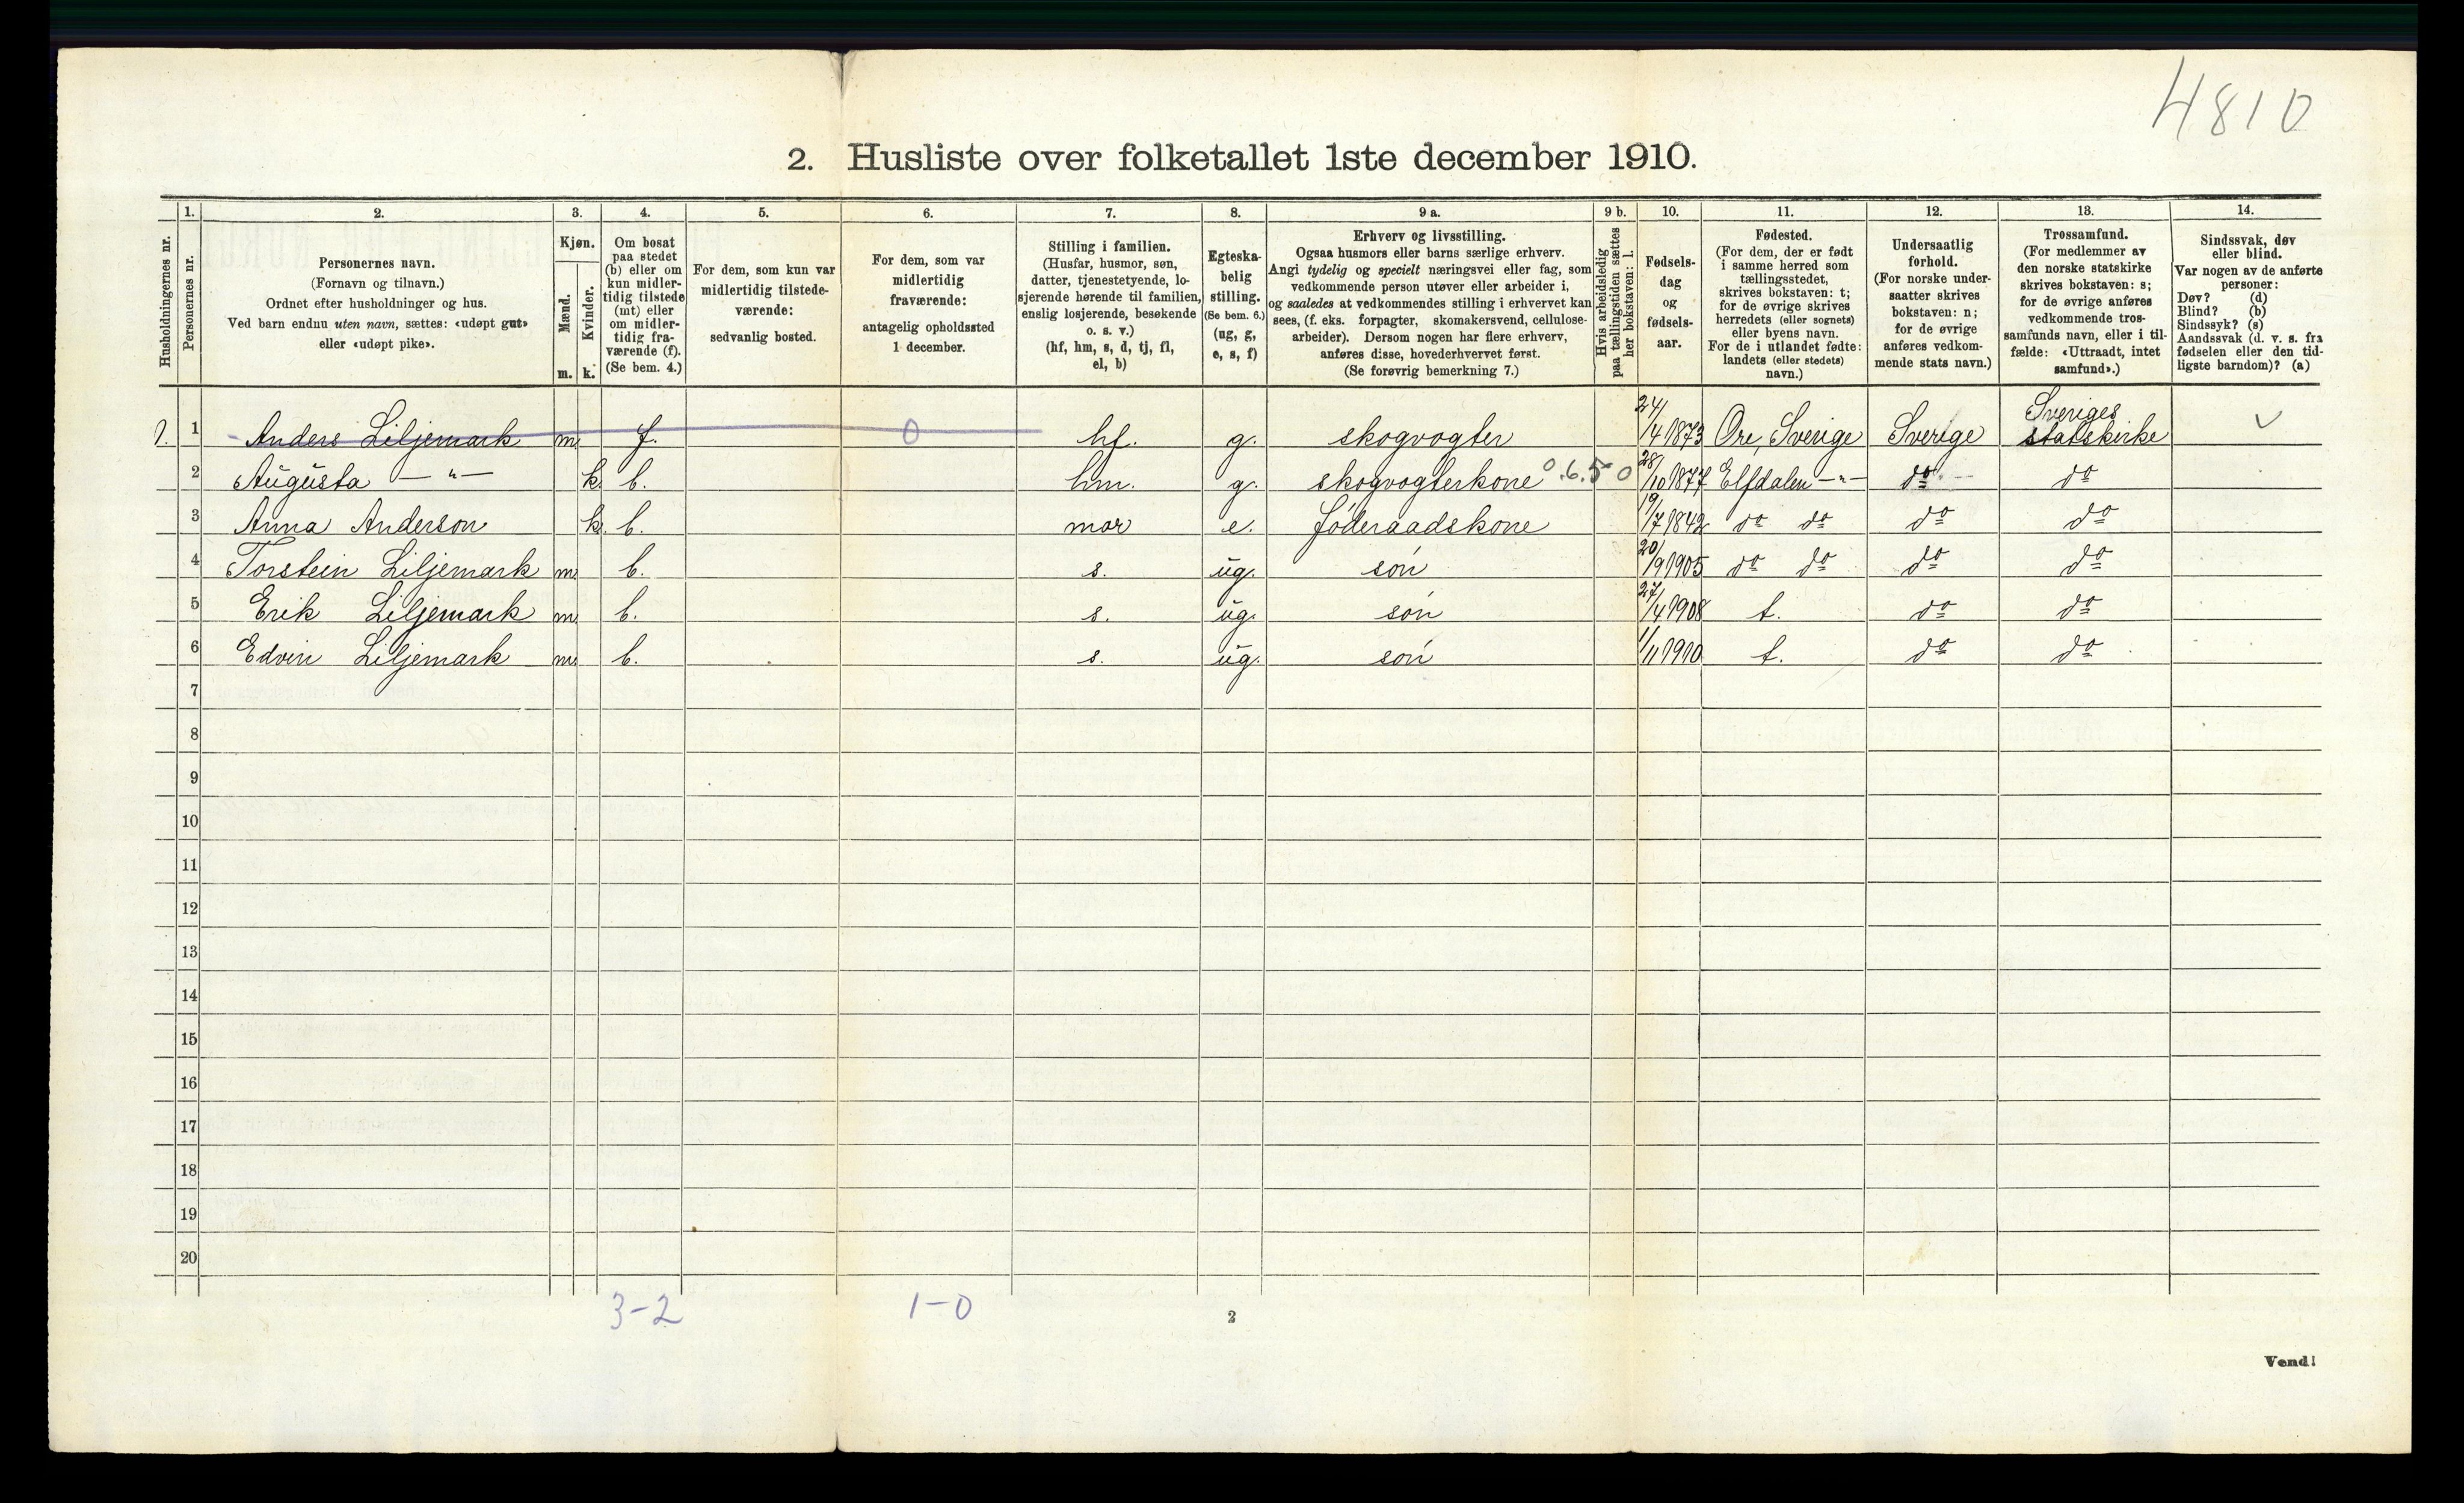 4810
2. Husliste over folketallet 1ste december 1910.
1. 2. 3. 4. 5. 6. 7. 8. 9 a. 9 b. 10. 11. 12. 13. 14.
Husholdningernes nr.
Personernes nr.
Personernes navn.
(Fornavn og tilnavn.)
Ordnet efter husholdninger og hus.
Ved barn endnu uten navn, sættes: «udøpt gut»
eller «udøpt pike».
Kjøn.
Mænd.
Kvinder.
m. k.
Om bosat
paa stedet
(b) eller om
kun midler-
tidig tilstede
(mt) eller
om midler-
tidig fra-
værende (f).
(Se bem. 4.)
For dem, som kun var
midlertidig tilstede-
værende:
sedvanlig bosted.
For dem, som var
midlertidig
fraværende:
antagelig opholdssted
1 december.
Stilling i familien.
(Husfar, husmor, søn,
datter, tjenestetyende, lo-
sjerende hørende til familien,
enslig losjerende, besøkende
o. s. v.)
(hf, hm, s, d, tj, fl,
el, b)
Egteska-
belig
stilling.
(Se bem. 6.)
(ug, g,
e, s, f)
Erhverv og livsstilling.
Ogsaa husmors eller barns særlige erhverv.
Angi tydelig og specielt næringsvei eller fag, som
vedkommende person utøver eller arbeider i,
og saaledes at vedkommendes stilling i erhvervet kan
sees, (f. eks. forpagter, skomakersvend, cellulose-
arbeider). Dersom nogen har flere erhverv,
anføres disse, hovederhvervet først.
(Se forøvrig bemerkning 7.)
Hvis arbeidsledig
paa tællingstiden sættes
her bokstaven: l.
Fødsels-
dag
og
fødsels-
aar.
Fødested.
(For dem, der er født
i samme herred som
tællingsstedet,
skrives bokstaven: t;
for de øvrige skrives
herredets (eller sognets)
eller byens navn.
For de i utlandet fødte:
landets (eller stedets)
navn.)
Undersaatlig
forhold.
(For norske under-
saatter skrives
bokstaven: n;
for de øvrige
anføres vedkom-
mende stats navn.)
Trossamfund.
(For medlemmer av
den norske statskirke
skrives bokstaven: s;
for de øvrige anføres
vedkommende tros-
samfunds navn, eller i til-
fælde: «Uttraadt, intet
samfund».)
Sindssvak, døv
eller blind.
Var nogen av de anførte
personer:
Døv? (d)
Blind? (b)
Sindssyk? (s)
Aandssvak (d. v. s. fra
fødselen eller den tid-
ligste barndom)? (a)
1. 1 Anders Liljemark m. f. 0 hf. g. skogvogter 24/4 1873 Ore, Sverige Sverige Sveriges statskirke
2 Augusta —"— k. b. hm. g. skogvogterkone 0.6.5 0 28/10 1877 Elfdalen —"— do do
3 Anna Anderson k. b. mor e. føderaadskone 19/7 1842 do do do do
4 Torstein Liljemark m. b. s. ug. søn 20/9 1905 do do do do
5 Erik Liljemark m. b. s. ug. søn 27/4 1908 t. do do
6 Edvin Liljemark m. b. s. ug. søn 1/11 1910 t. do do
7
8
9
10
11
12
13
14
15
16
17
18
19
20
3-2 1-0
2
Vend!